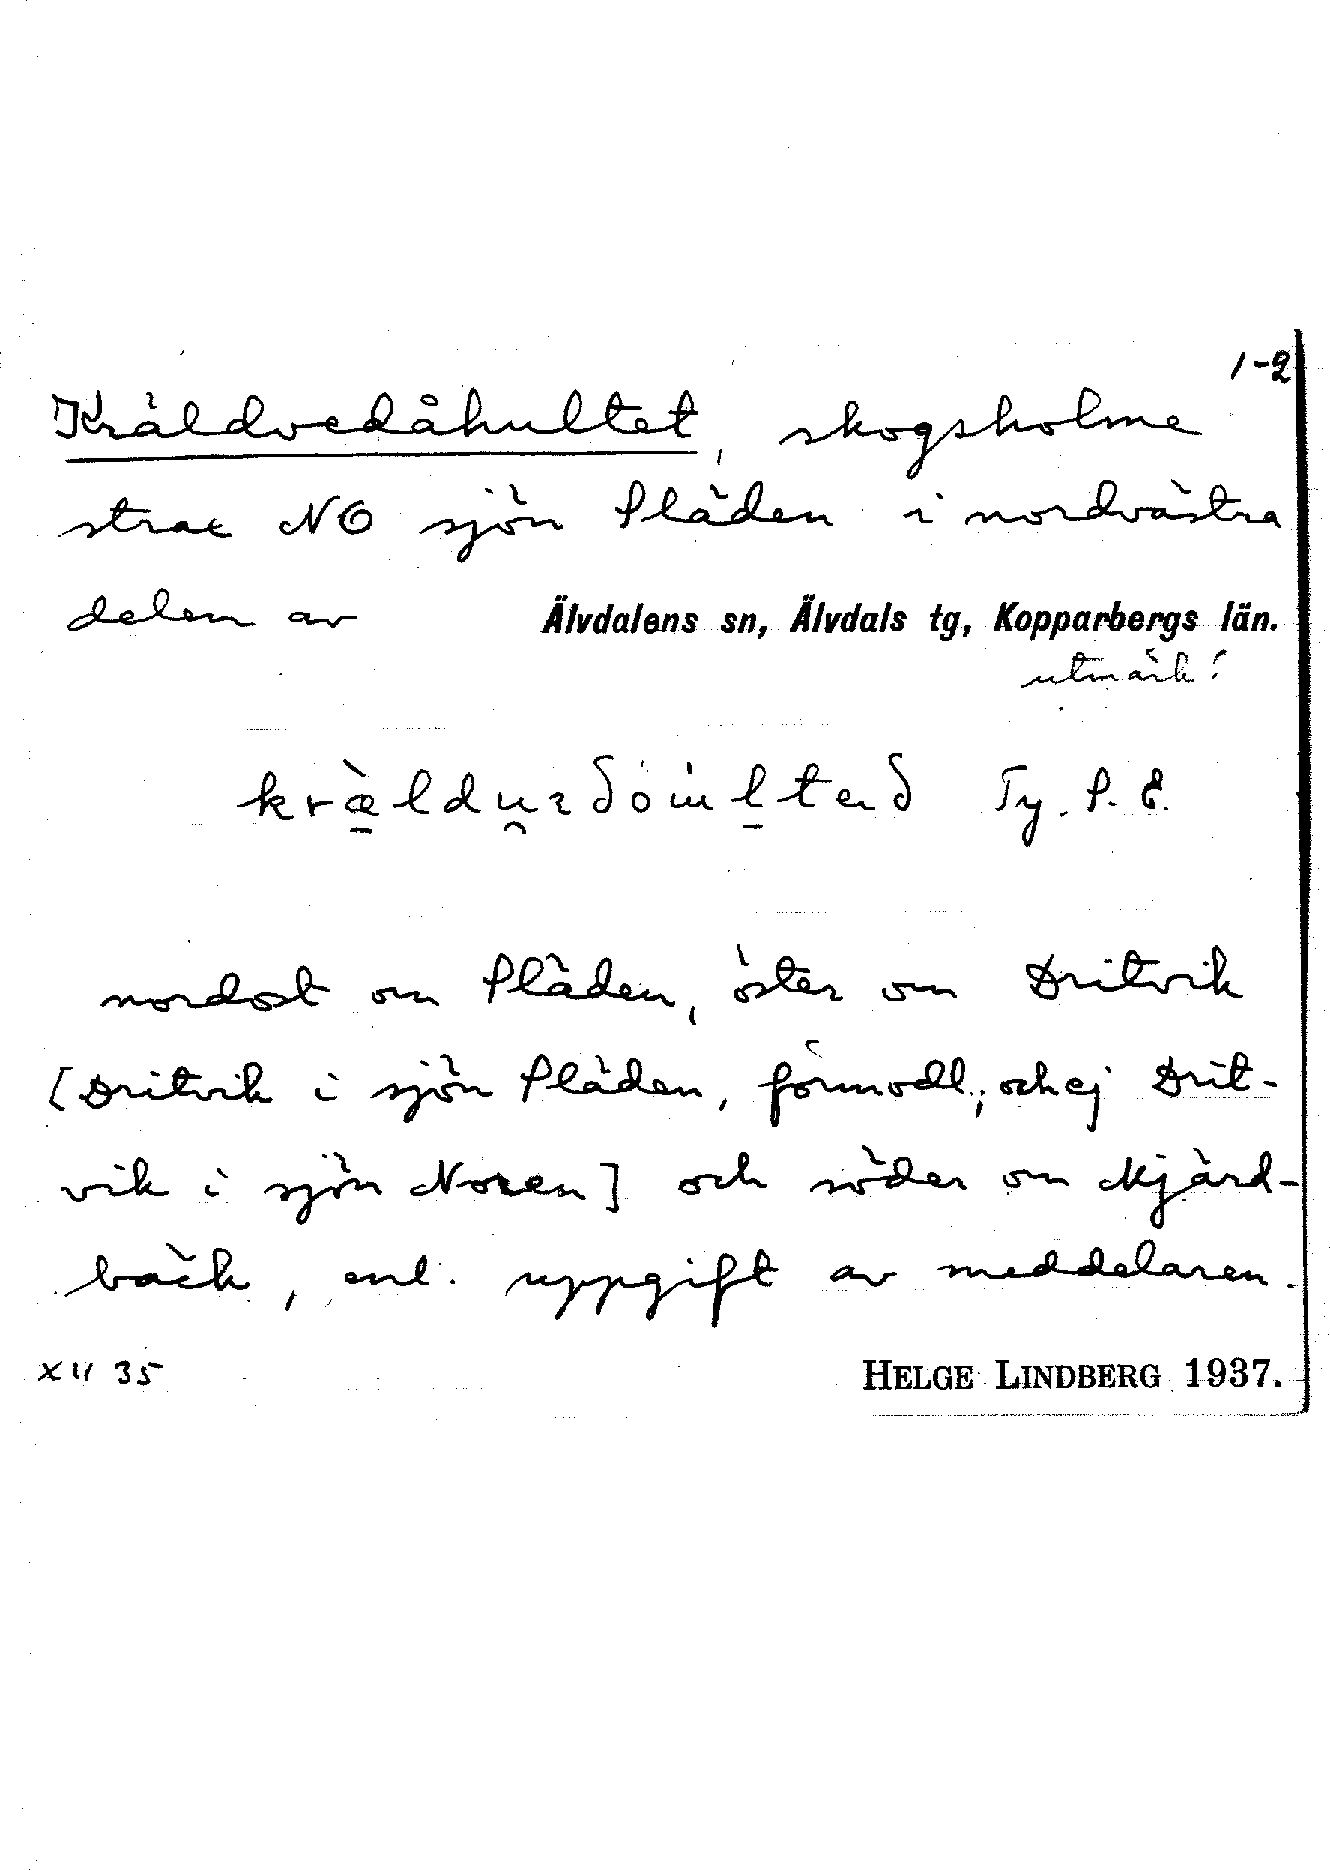 1-2
Kräldvedåhultet, skogsholme
strax NO sjön Pläden i nordvästra
delen av Älvdalens sn, Älvdals tg, Kopparbergs län.
utmärk!
Ty. P. E.
nordost om Pläden, öster om Dritvik
[Dritvik i sjön Pläden, förmodl., och ej Drit-
vik i sjön Noren] och söder om Mjärd-
bäck, enl. uppgift av meddelaren.
XII 35 HELGE LINDBERG 1937.